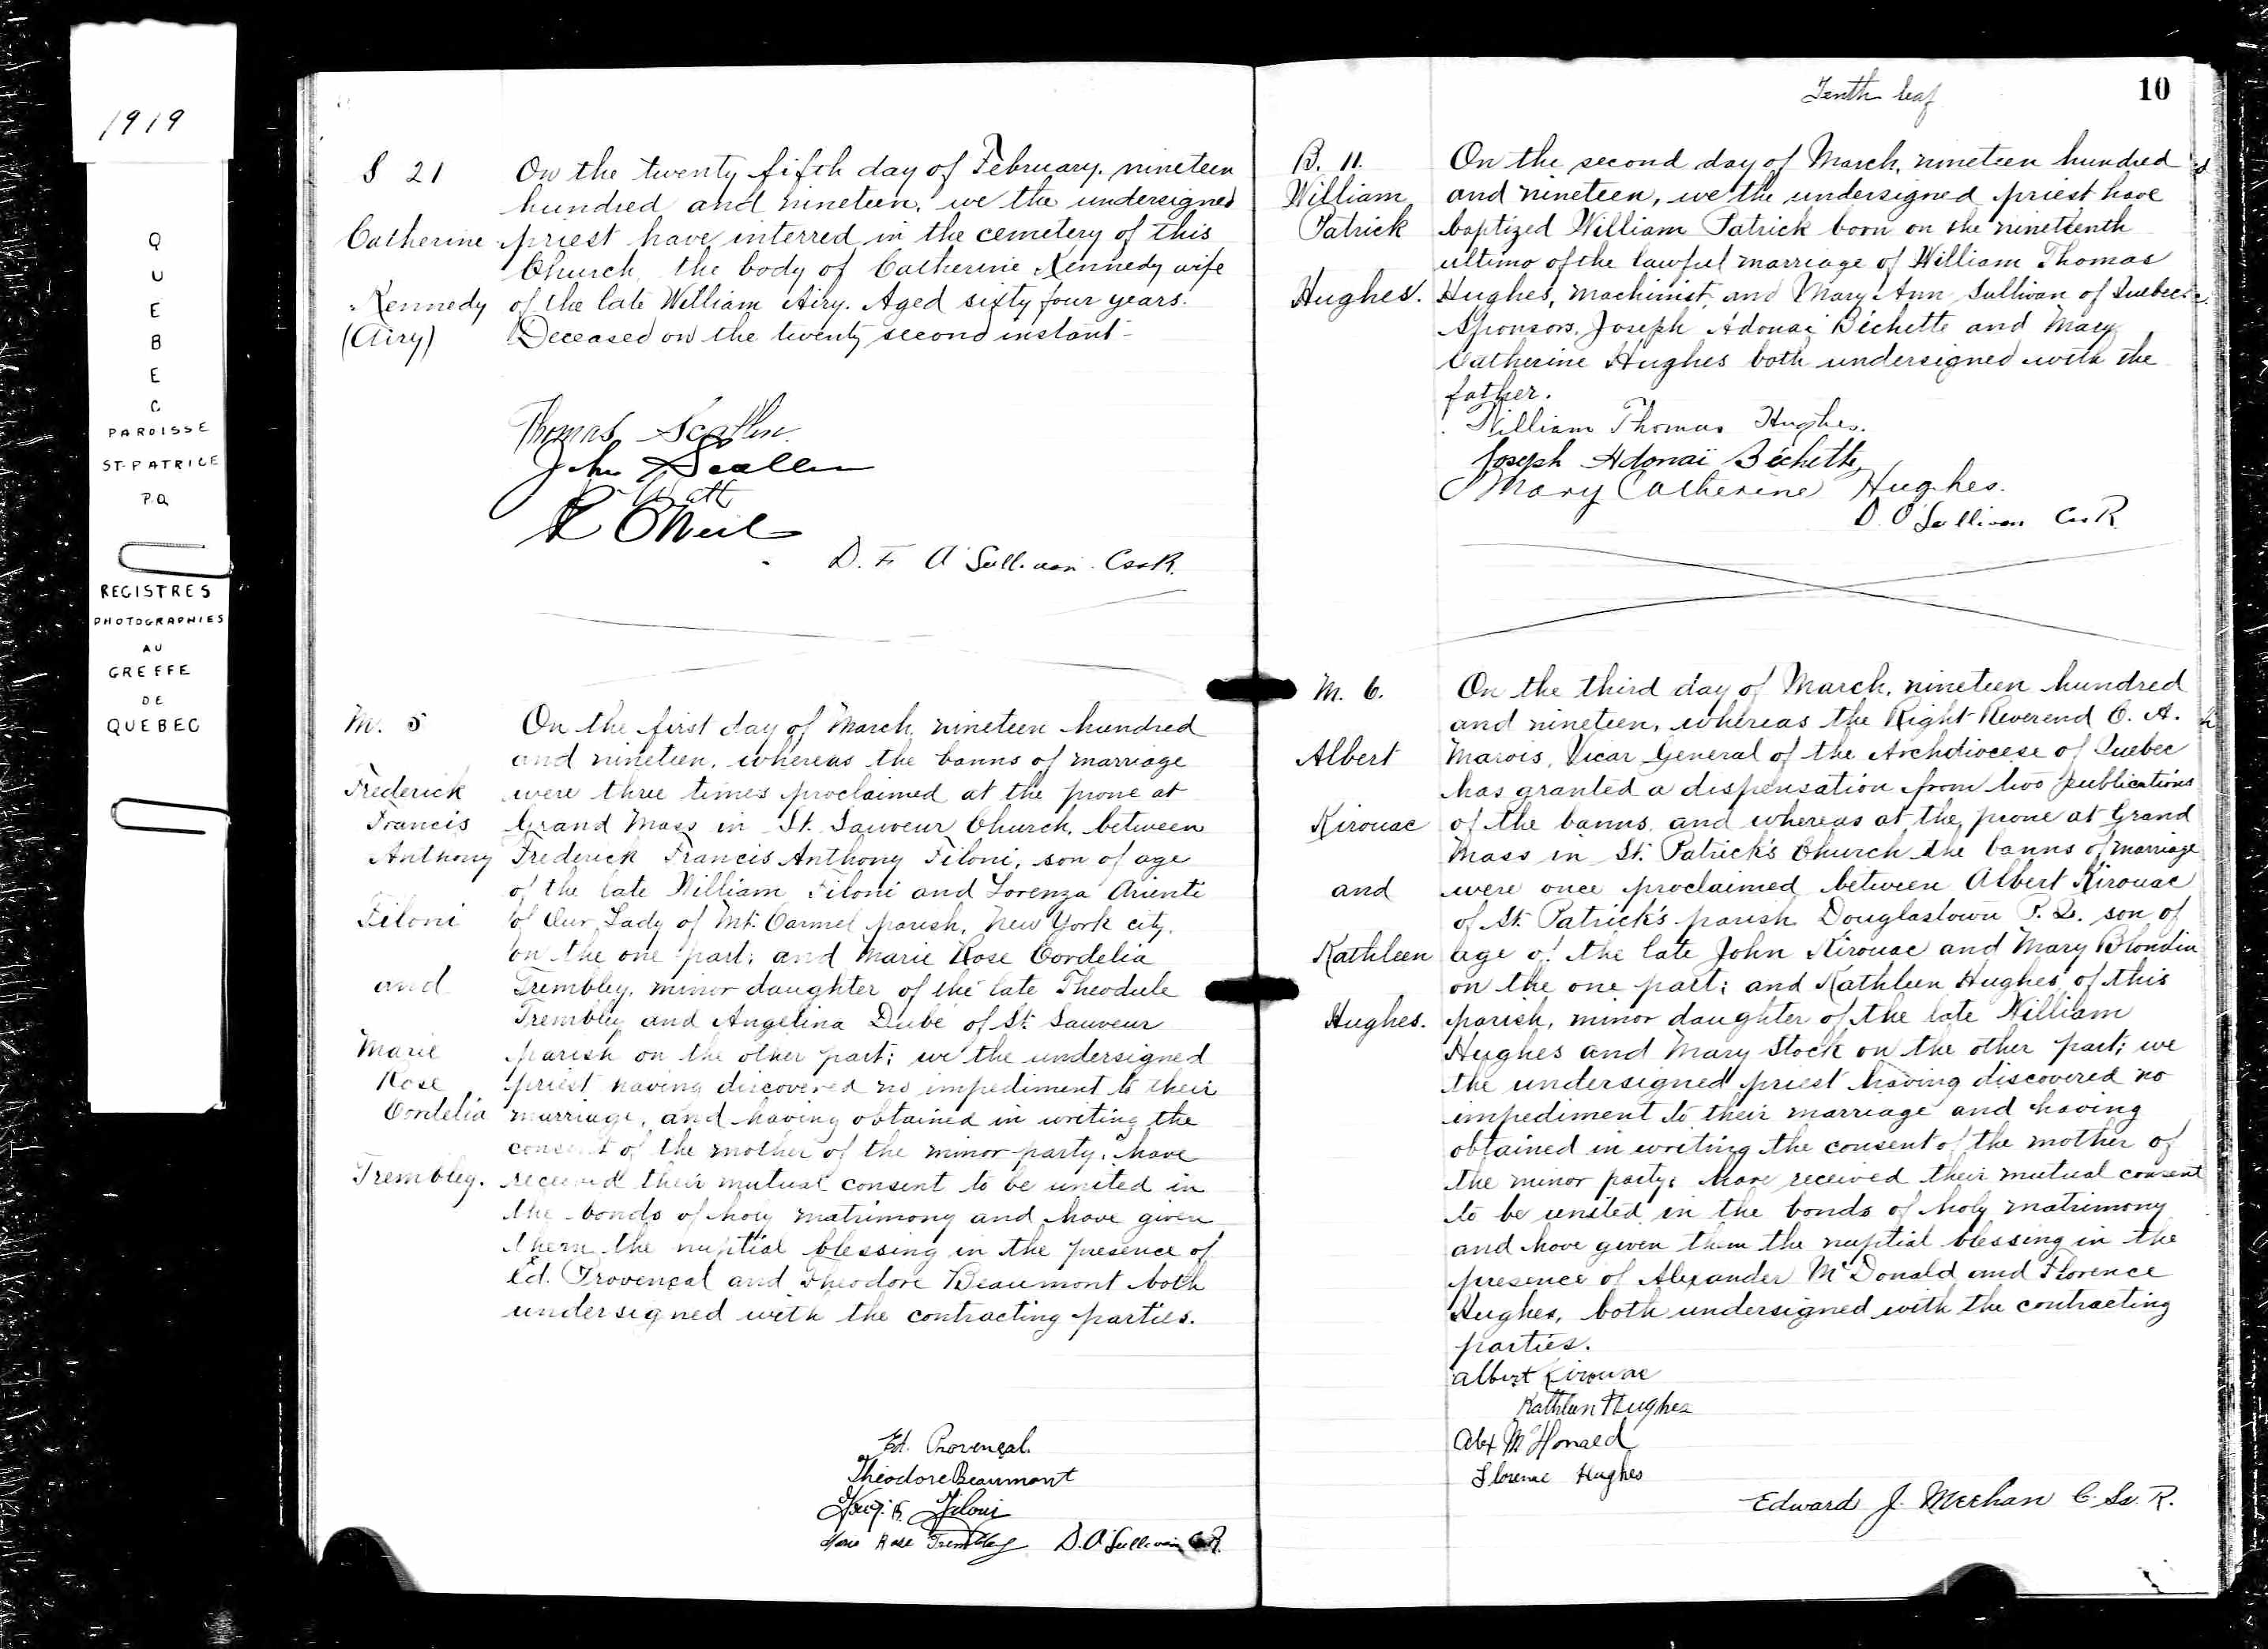 1919
QUEBEC
PAROISSE
ST-PATRICE
P.Q
REGISTRES
PHOTOGRAPHIES
AU
GREFFE
DE
QUEBEC
S 21
Catherine
Kennedy
(Airy)
On the twenty fifth day of February, nineteen
hundred and nineteen, we the undersigned
priest have interred in the cemetery of this
Church the body of Catherine Kennedy wife
of the late William Airy. Aged sixty four years.
Deceased on the twenty second instant-
Thomas Scallen
John Scallen
O'Neil
D. F. O'Sullivan. CssR.
M. 5
Frederick
Francis
Anthony
Filoni
and
Marie
Rose
Cordelia
Trembley.
On the first day of March, nineteen hundred
and nineteen, whereas the banns of marriage
were three times proclaimed at the prone at
Grand Mass in St. Sauveur Church, between
Frederick Francis Anthony Filoni, son of age
of the late William Filoni and Lorenza Arienti
of Our Lady of Mt. Carmel parish, New York city,
on the one part; and Marie Rose Cordelia
Trembley, minor daughter of the late Theodule
Trembley and Angelina Dubé of St. Sauveur
parish on the other part; we the undersigned
priest having discovered no impediment to their
marriage, and having obtained in writing the
consent of the mother of the minor party, have
received their mutual consent to be united in
the bonds of holy matrimony and have given
them the nuptial blessing in the presence of
Ed. Provençal and Theodore Beaumont both
undersigned with the contracting parties.
Ed. Provençal.
Theodore Beaumont
Filoni
Marie Rose Trembley D. O'Sullivan CssR.
Tenth leaf
10
B. 11.
William
Patrick
Hughes.
On the second day of March, nineteen hundred
and nineteen, we the undersigned priest have
baptized William Patrick born on the nineteenth
ultimo of the lawful marriage of William Thomas
Hughes, machinist, and Mary Ann Sullivan of Quebec.
Sponsors, Joseph Adonai Béchette and Mary
Catherine Hughes both undersigned with the
father.
William Thomas Hughes.
Joseph Adonaï Béchette
Mary Catherine Hughes.
D. O'Sullivan CssR.
M. 6.
Albert
Kirouac
and
Kathleen
Hughes.
On the third day of March, nineteen hundred
and nineteen, whereas the Right Reverend C. A.
Marois, Vicar General of the Archdiocese of Quebec
has granted a dispensation from two publications
of the banns, and whereas at the prone at Grand
Mass in St. Patrick's Church the banns of marriage
were once proclaimed between Albert Kirouac
of St. Patrick's parish Douglastown P.Q. son of
age of the late John Kirouac and Mary Blondin
on the one part; and Kathleen Hughes of this
parish, minor daughter of the late William
Hughes and Mary Stock on the other part; we
the undersigned priest having discovered no
impediment to their marriage and having
obtained in writing the consent of the mother of
the minor party; have received their mutual consent
to be united in the bonds of holy matrimony
and have given them the nuptial blessing in the
presence of Alexander McDonald and Florence
Hughes, both undersigned with the contracting
parties.
Albert Kirouac
Kathleen Hughes
Alex McDonald
Florence Hughes
Edward J. Meehan C.Ss.R.